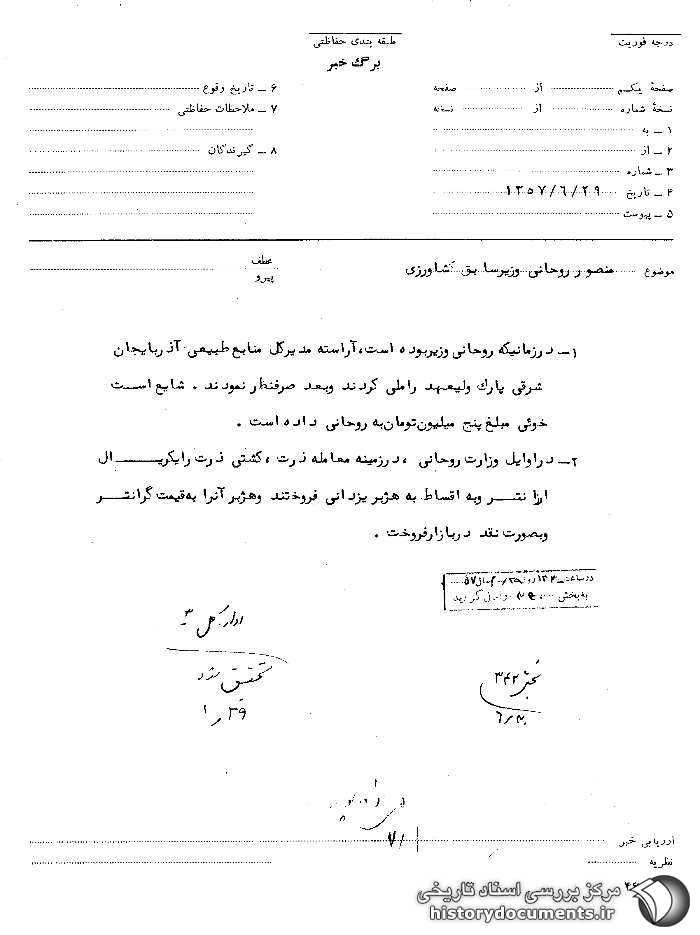 درجه فوریت
طبقه بندی حفاظتی
برگ خبر
صفحهٔ یکم ........ از ........ صفحه
نسخهٔ شماره ........ از ........ نسخه
۱ ـ به
۲ ـ از
۳ ـ شماره
۴ ـ تاریخ ۱۳۵۷/۶/۲۹
۵ ـ پیوست
۶ ـ تاریخ وقوع
۷ ـ ملاحظات حفاظتی
۸ ـ گیرندگان
موضوع منصور روحانی وزیر سابق کشاورزی
عطف
پیرو
۱ـ در زمانیکه روحانی وزیر بوده است، آراسته مدیر کل منابع طبیعی آذربایجان
شرقی پارك ولیعهد را ملی کردند وبعد صرفنظر نمودند . شایع است
خوئی مبلغ پنج میلیون تومان به روحانی داده است .
۲ـ در اوایل وزارت روحانی ، در زمینه معامله ذرت ، کشتی ذرت را یکریال
ارزانتر وبه اقساط به هژبر یزدانی فروختند وهژبر آنرا به قیمت گرانتر
وبصورت نقد در بازار فروخت .
در ساعت
به بخش
اداره کل ۳
تحقیق شود
بخش ۳۴۲
ارزیابی خبر
نظریه
مرکز بررسی اسناد تاریخی
historydocuments.ir